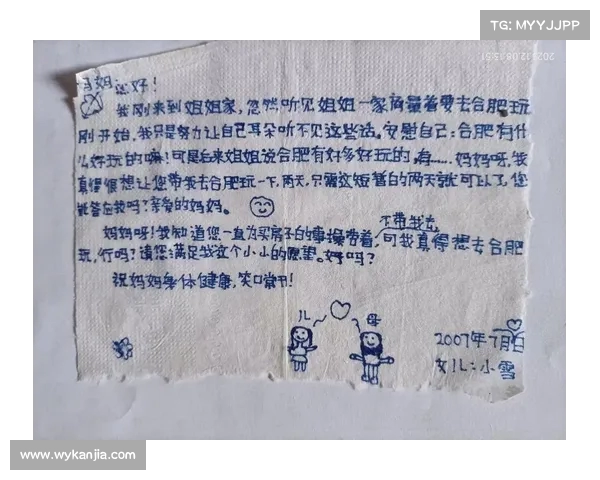 TG: MYYJJPP
您好!
我刚来到姐姐家,忽然听见姐姐一家商量着要去合肥玩
刚开始,我只是努力让自己耳朵听不见这些话,安慰自己:合肥有什
么好玩的嘛!可是后来姐姐说合肥有好多好玩的,有……妈妈呀,我
真得很想让您带我去合肥玩一下,两天,只需这短暂的两天就可以了,您
能答应我吗?亲爱的妈妈。
不带我去
妈妈呀!我知道您一直为买房子的事操劳着,可我真得想去合肥
玩,行吗?请您满足我这个小小的愿望。好吗?
祝妈妈身体健康,笑口常开!
儿 母
2007年7月
女儿:小雪
www.wykanjia.com